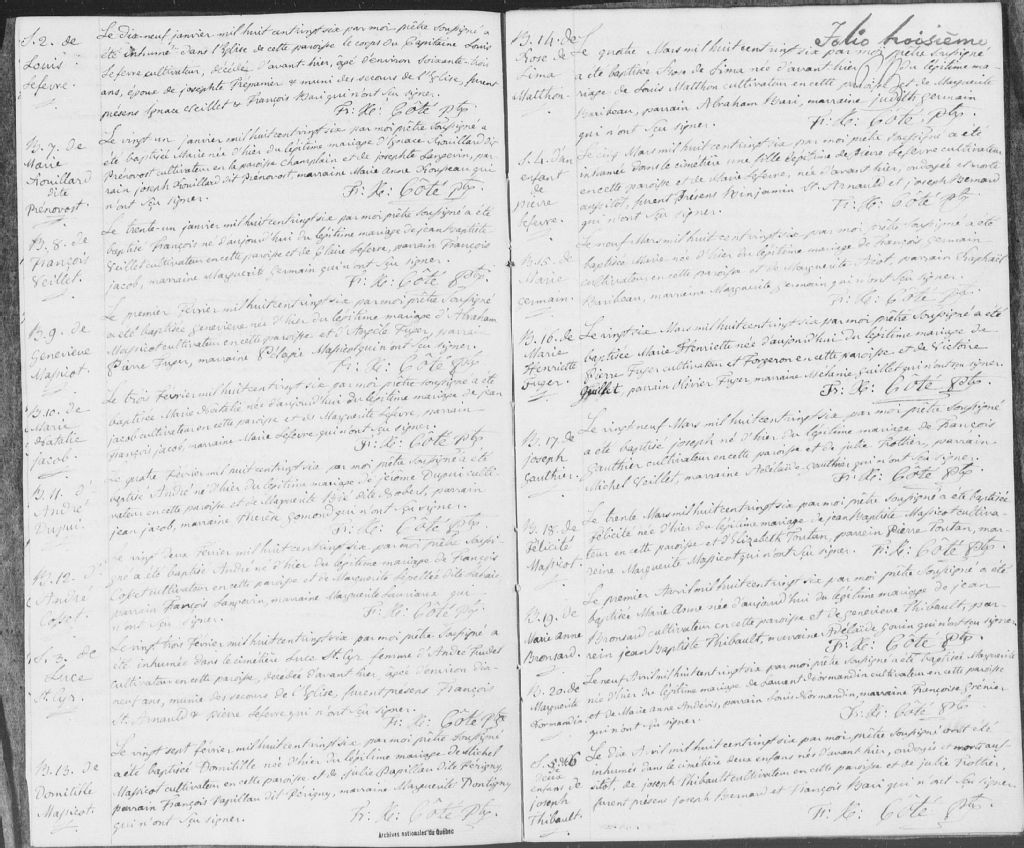 S. 2. de
Louis
Lefevre.
Le dix-neuf janvier mil huit cent vingt six par moi prêtre soussigné a
été inhumé dans l'Eglise de cette paroisse le corps du Capitaine Louis
Lefevre cultivateur, décédé d'avant hier, agé d'environ soixante-trois
ans, époux de josephte Trépanier & muni des secours de l'Eglise, furent
présens Ignace Veillet & François Bari qui n'ont sçu signer.
Fr: X: Côté ptre
B. 7. de
Marie
Rouillard
dite
Prenovost.
Le vingt un janvier mil huit cent vingt six par moi prêtre soussigné a
été baptisée Marie née d'hier du légitime mariage d'Ignace Rouillard dit
Prenovost cultivateur en la paroisse Champlain et de josephte Lanzevin, par-
rain joseph Rouillard dit Prénovost marraine Marie Anne qui
n'ont sçu signer.
Fr: X: Côté ptre
B. 8. de
François
Veillet.
Le trente-un janvier mil huit cent vingt six par moi prêtre soussigné a été
baptisé François né d'aujourd'hui du légitime mariage de jean Baptiste
Veillet cultivateur en cette paroisse et de Claire Lefevre, parrain François
jacob, marraine Marguerite Germain qui n'ont sçu signer.
Fr: X: Côté ptre
B. 9. de
Geneviève
Massicot.
Le premier Février mil huit cent vingt six par moi prêtre soussigné
a été baptisée Geneviève née d'hier du légitime mariage d'Abraham
Massicot cultivateur en cette paroisse et d'Angèle Fuger, parrain
Pierre Fuger, marraine Pélagie Massicot qui n'ont sçu signer.
Fr: X: Côté ptre
B. 10. de
Marie
Natalie
jacob.
Le trois Février mil huit cent vingt six par moi prêtre soussigné a été
baptisée Marie Natalie née d'aujourd'hui du légitime mariage de jean
jacob cultivateur en cette paroisse et de Marguerite Lefevre, parrain
François jacob, marraine Marie Lefevre qui n'ont sçu signer.
Fr: X: Côté ptre
B. 11. d'
André
Dupui.
Le quatre Février mil huit cent vingt six par moi prêtre soussigné a été
baptisé André né d'hier du légitime mariage de jerome Dupui culti-
vateur en cette paroisse et de Marguerite dite parrain
jean jacob, marraine Therese qui n'ont sçu signer.
Fr: X: Côté ptre
B. 12. d'
André
Cosset.
Le vingt deux Février mil huit cent vingt six par moi prêtre soussi-
gné a été baptisé André né d'hier du légitime mariage de François
Cosset cultivateur en cette paroisse et de Marguerite dite
parrain François Lanzevin, marraine Marguerite qui
n'ont sçu signer.
Fr: X: Côté ptre
S. 3. de
Luce
St. Cyr.
Le vingt trois Février mil huit cent vingt six par moi prêtre soussigné a
été inhumée dans le cimétière Luce St. Cyr femme d'André Trudel
cultivateur en cette paroisse, décédée d'avant hier, agée d'environ dix-
neuf ans, munie des secours de l'Eglise, furent présens François
St. Arnauld & pierre Lefevre qui n'ont sçu signer.
Fr: X: Côté ptre
B. 13. de
Domitille
Massicot.
Le vingt sept février mil huit cent vingt six par moi prêtre soussigné
a été baptisée Domitille née d'hier du légitime mariage de Michel
Massicot cultivateur en cette paroisse et de Julie Papillan dite Périgny,
parrain François Papillan dit Périgny, marraine Marguerite Dontigny
qui n'ont sçu signer.
Fr: X: Côté ptre
Archives nationales du Québec
Folio troisième
B. 14. de
Rose de
Lima
Matthon.
Le quatre Mars mil huit cent vingt six par moi prêtre soussigné
a été baptisée Rose de Lima née d'avant hier du légitime ma-
riage de Louis Matthon cultivateur en cette paroisse et de Marguerite
Baribeau, parrain Abraham Bari, marraine judith Germain
qui n'ont sçu signer.
Fr: X: Côté ptre
S. 4. d'un
enfant
de
pierre
Lefevre.
Le cinq Mars mil huit cent vingt six par moi prêtre soussigné a été
inhumé dans le cimétière une fille légitime de Pierre Lefevre cultivateur
en cette paroisse et de Marie Lefevre, née d'avant hier, ondoyée et morte
aussitot, furent présens Benjamin St. Arnauld et joseph Bernard
qui n'ont sçu signer.
Fr: X: Côté ptre
B. 15. de
Marie
Germain.
Le neuf Mars mil huit cent vingt six par moi prêtre soussigné a été
baptisée Marie née d'hier du légitime mariage de François Germain
cultivateur en cette paroisse et de Marguerite parrain Raphaël
Baribeau, marraine Marguerite Germain qui n'ont sçu signer.
Fr: X: Côté ptre
B. 16. de
Marie
Henriette
Fuger.
Le vingt six Mars mil huit cent vingt six par moi prêtre soussigné a été
baptisée Marie Henriette née d'aujourd'hui du légitime mariage de
Pierre Fuger cultivateur et Forgeron en cette paroisse et de Victoire
Guillet, parrain Olivier Fuger, marraine Mélanie Guillet qui n'ont sçu signer.
Fr: X: Côté ptre
B. 17. de
joseph
Gauthier.
Le vingt neuf Mars mil huit cent vingt six par moi prêtre soussigné
a été baptisé joseph né d'hier du légitime mariage de François
Gauthier cultivateur en cette paroisse et de julie parrain
Michel Veillet, marraine Adélaïde Gauthier qui n'ont sçu signer.
Fr: X: Côté ptre
B. 18. de
Félicité
Massicot.
Le trente Mars mil huit cent vingt six par moi prêtre soussigné a été baptisée
Félicité née d'hier du légitime mariage de jean Baptiste Massicot cultiva-
teur en cette paroisse et d'Elizabeth Toutan, parrein Pierre Toutan, mar-
reine Marguerite Massicot qui n'ont sçu signer. Fr: X: Côté ptre
B. 19. de
Marie Anne
Bronsard.
Le premier Avril mil huit cent vingt six par moi prêtre soussigné a été
baptisée Marie Anne née d'aujourd'hui du légitime mariage de jean
Bronsard cultivateur en cette paroisse et de Geneviève Thibault, par-
rein jean Baptiste Thibault, marraine Adélaïde Gouin qui n'ont sçu signer.
Fr: X: Côté ptre
B. 20. de
Marguerite
Normandin.
Le neuf Avril mil huit cent vingt six par moi prêtre soussigné a été baptisée Marguerite
née d'hier du légitime mariage de Laurent Normandin cultivateur en cette paroisse
et de Marie Anne parrain Louis Normandin, marraine Françoise Grénier
qui n'ont sçu signer.
Fr: X: Côté ptre
S. 5. & 6
deux
enfans de
joseph
Thibault.
Le dix Avril mil huit cent vingt six par moi prêtre soussigné ont été
inhumés dans le cimétière deux enfans nés d'avant hier, ondoyés et morts aus-
sitot, de joseph Thibault cultivateur en cette paroisse et de julie
furent présens joseph Bernard et François Bari qui n'ont sçu signer.
Fr: X: Côté ptre